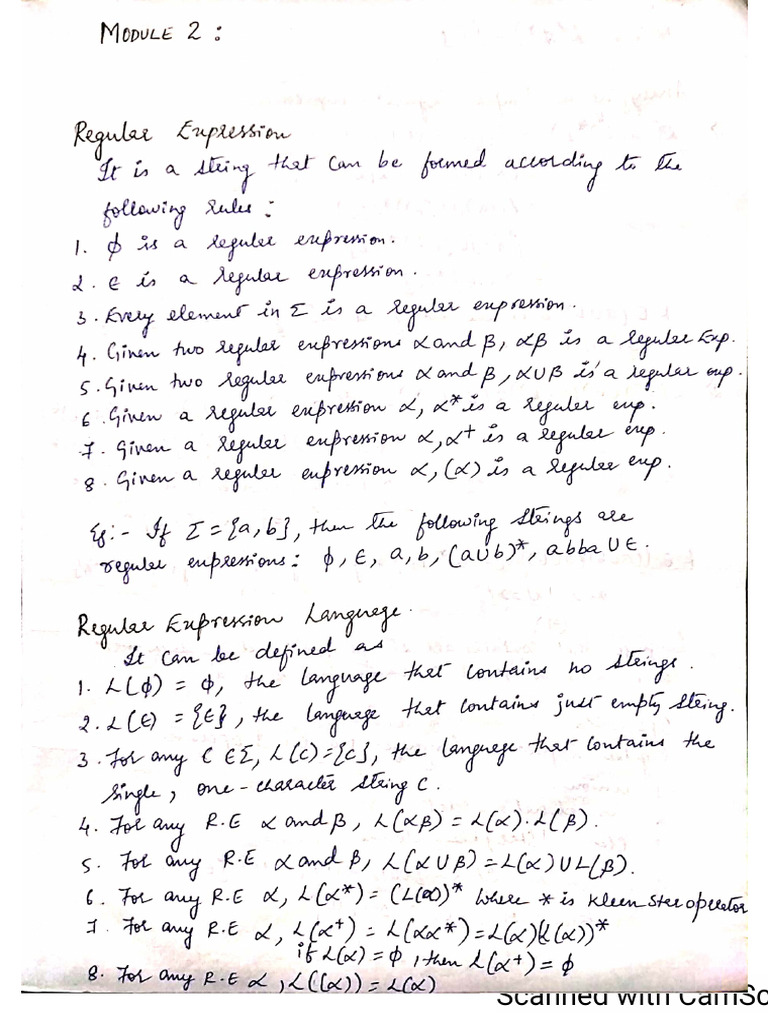 MODULE 2 :
Regular Expression
It is a string that can be formed according to the
following rules :
1. ϕ is a regular expression.
2. ϵ is a regular expression.
3. Every element in Σ is a regular expression.
4. Given two regular expressions α and β, αβ is a regular Exp.
5. Given two regular expressions α and β, α∪β is a regular exp.
6. Given a regular expression α, α* is a regular exp.
7. Given a regular expression α, α⁺ is a regular exp.
8. Given a regular expression α, (α) is a regular exp.
Eg:- If Σ = {a, b}, then the following strings are
regular expressions: ϕ, ϵ, a, b, (a∪b)*, abba ∪ ϵ.
Regular Expression Language.
It can be defined as
1. L(ϕ) = ϕ, the language that contains no strings.
2. L(ϵ) = {ϵ}, the language that contains just empty string.
3. For any C ∈ Σ, L(c) = {c}, the language that contains the
single, one-character string C.
4. For any R.E α and β, L(αβ) = L(α).L(β).
5. For any R.E α and β, L(α∪β) = L(α) ∪ L(β).
6. For any R.E α, L(α*) = (L(α))* where * is kleen star operator
7. For any R.E α, L(α⁺) = L(αα*) = L(α)(L(α))*
if L(α) = ϕ, then L(α⁺) = ϕ
8. For any R.E α, L((α)) = L(α)
Scanned with CamSc